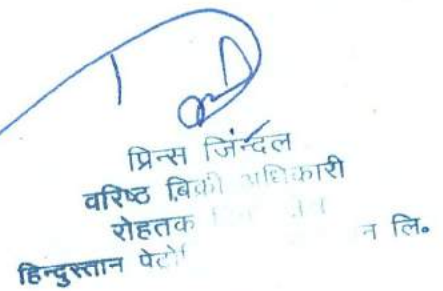 प्रिन्स जिंन्दल
वरिष्ठ बिक्री अधिकारी
रोहतक
हिन्दुस्तान न लि॰